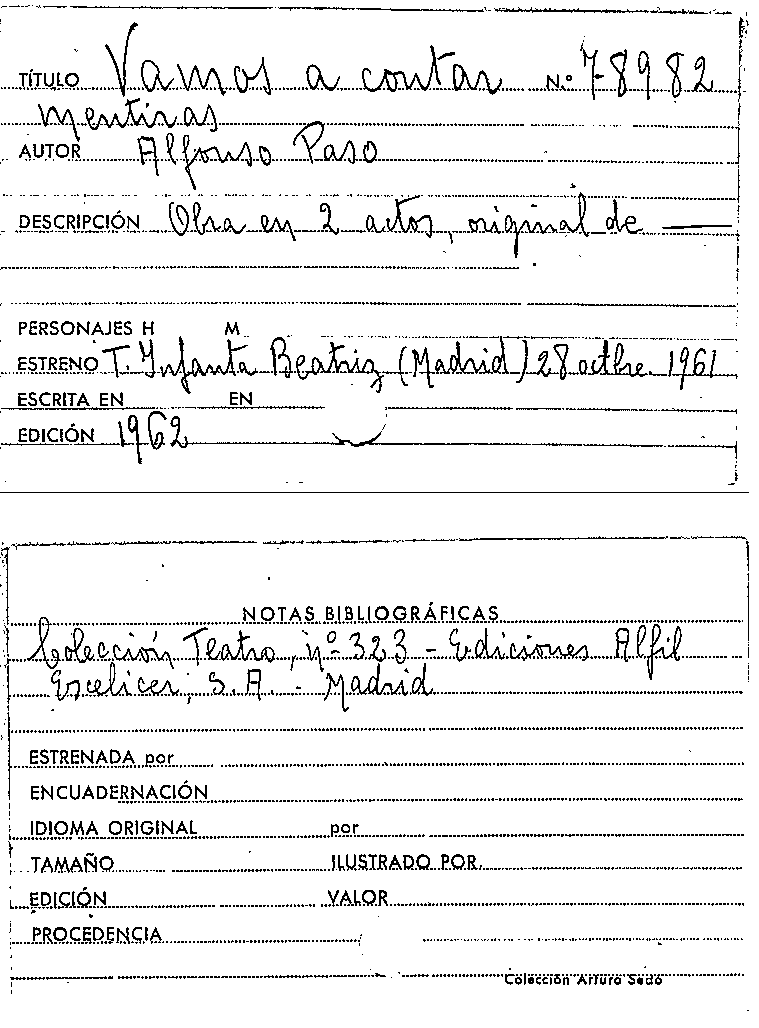 TÍTULO Vamos a contar N.º 78982
mentiras
AUTOR Alfonso Paso
DESCRIPCIÓN Obra en 2 actos, original de —
PERSONAJES H M
ESTRENO T. Infanta Beatriz (Madrid) 28 octbre. 1961
ESCRITA EN EN
EDICIÓN 1962
NOTAS BIBLIOGRÁFICAS
Colección Teatro, nº 323 - Ediciones Alfil
Escelicer, S.A. - Madrid
ESTRENADA por
ENCUADERNACIÓN
IDIOMA ORIGINAL por
TAMAÑO ILUSTRADO POR
EDICIÓN VALOR
PROCEDENCIA
Colección Arturo Sedó